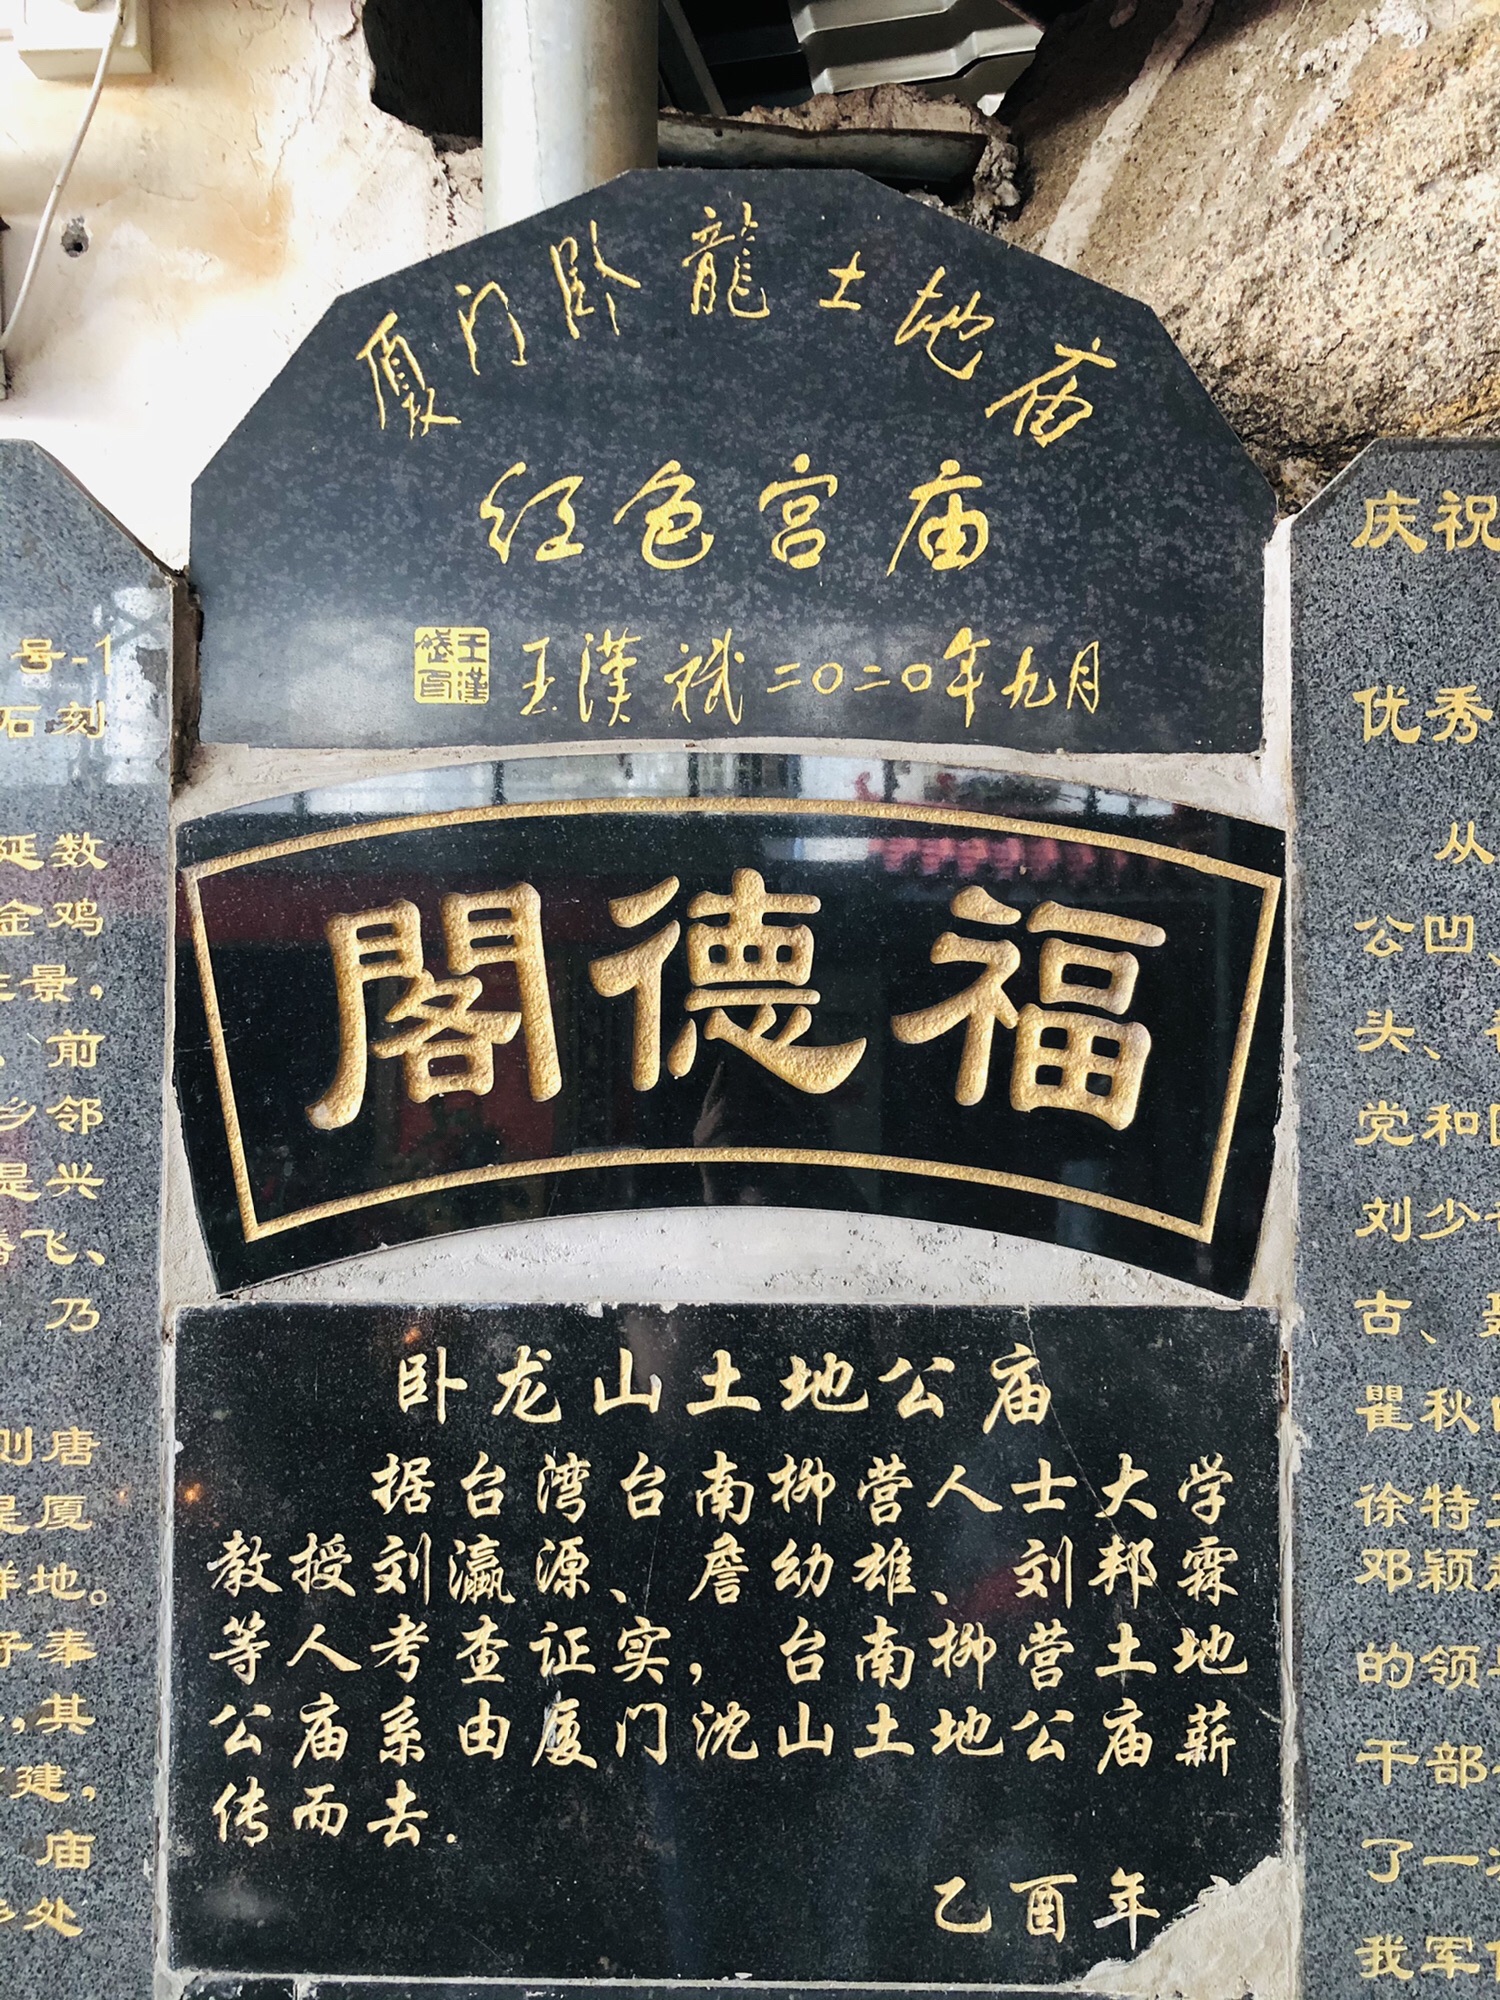 厦门卧龍土地庙
红色宫庙
王漢斌二〇二〇年九月
福德閣
卧龙山土地公庙
据台湾台南柳营人士大学
教授刘瀛源、詹幼雄、刘邦霖
等人考查证实，台南柳营土地
公庙系由厦门沈山土地公庙薪
传而去.
乙酉年
号-1
石刻
延数
金鸡
景，
、前
乡邻
是兴
飞、
乃
则唐
是厦
地。
奉
，其
建，
庙
处
庆祝
优秀
从
公凹、
头、
党和
刘少
古、
瞿秋
徐特
邓颖
的领
干部
了一
我军